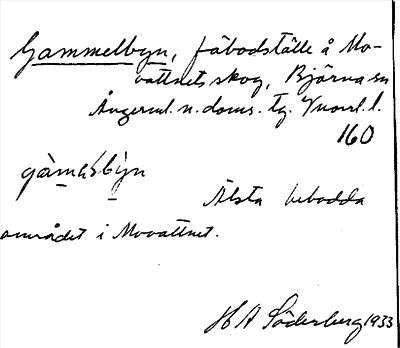 Gammelbyn, fäbodställe å Mo-
vattnets skog, Björna sn
Ångerml. n. doms. tg. Vnorrl. l.
160
gàmaƚby̆n
Älsta bebodda
området i Movattnet.
H A Söderberg 1933